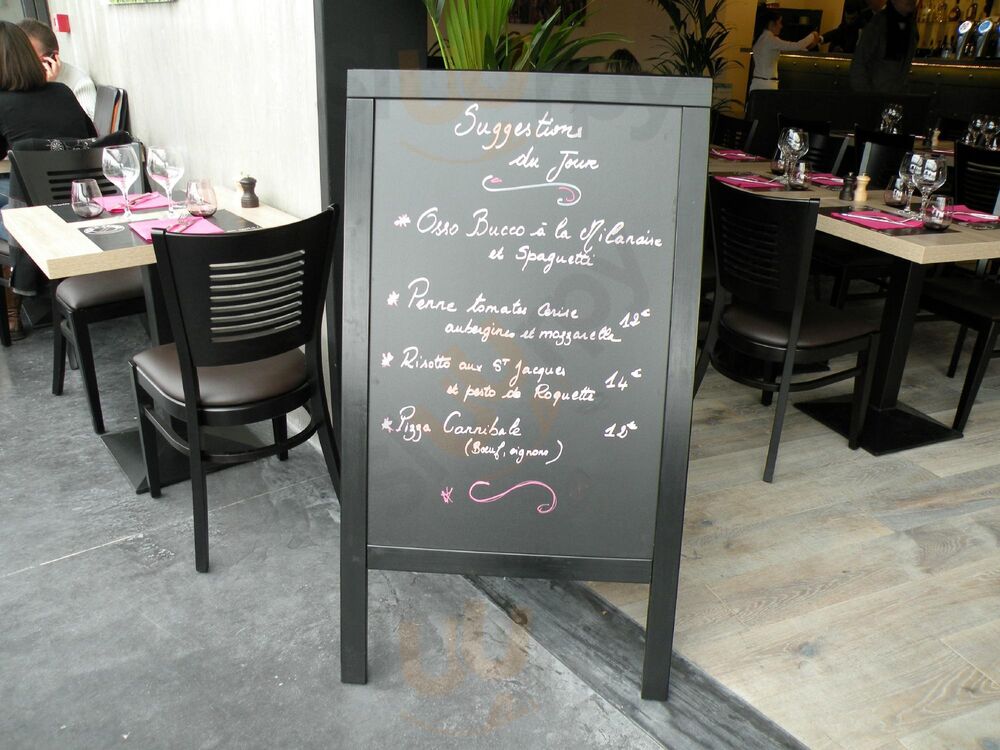 Suggestions
du Jour
Osso Bucco à la Milanaise
et Spaguetti
Penne tomates cerise
aubergines et mozzarella 12€
Risotto aux St Jacques
et pesto de Roquette 14€
Pizza Cannibale 12€
(Bœuf, oignons)